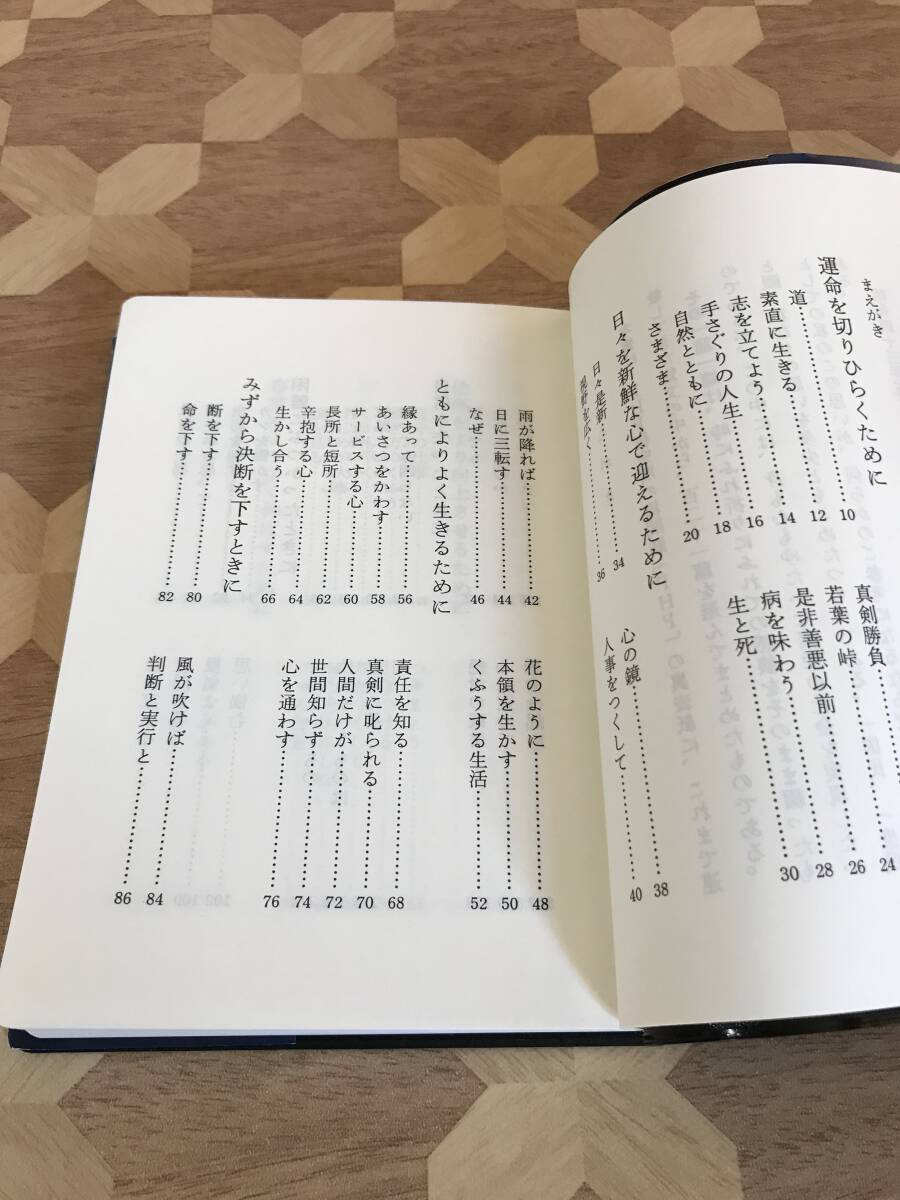 まえがき
運命を切りひらくために
道…………10
素直に生きる…………12
志を立てよう…………14
手さぐりの人生…………16
自然とともに…………18
さまざま…………20
真剣勝負…………
若葉の峠…………24
是非善悪以前…………26
病を味わう…………28
生と死…………30
日々を新鮮な心で迎えるために
日々是新…………34
視野を広く…………36
心の鏡…………38
人事をつくして…………40
雨が降れば…………42
日に三転す…………44
なぜ…………46
花のように…………48
本領を生かす…………50
くふうする生活…………52
ともによりよく生きるために
縁あって…………56
あいさつをかわす…………58
サービスする心…………60
長所と短所…………62
辛抱する心…………64
生かし合う…………66
責任を知る…………68
真剣に叱られる…………70
人間だけが…………72
世間知らず…………74
心を通わす…………76
みずから決断を下すときに
断を下す…………80
命を下す…………82
風が吹けば…………84
判断と実行と…………86